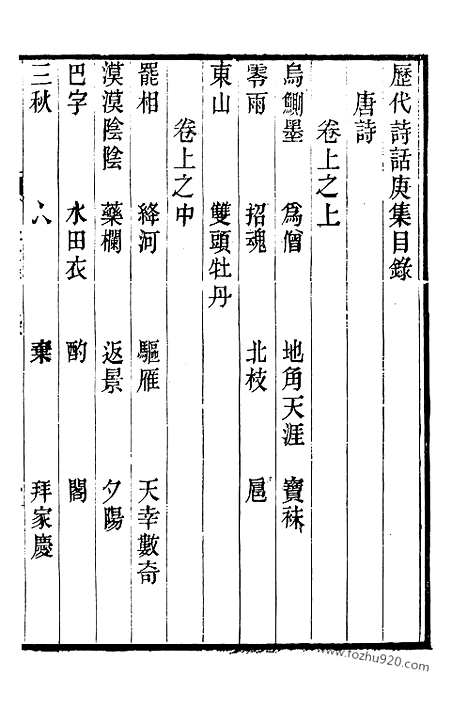 歷代詩話庚集目錄
唐詩
卷上之上
烏鰂墨 為僧 地角天涯 寶袜
零雨 招魂 北枝 扈
東山 雙頭牡丹
卷上之中
罷相 絳河 驅雁 天幸數奇
漠漠陰陰 藥欄 返景 夕陽
巴字 水田衣 酌 閣
三秋 八 乘 拜家慶
www.fozhu920.com